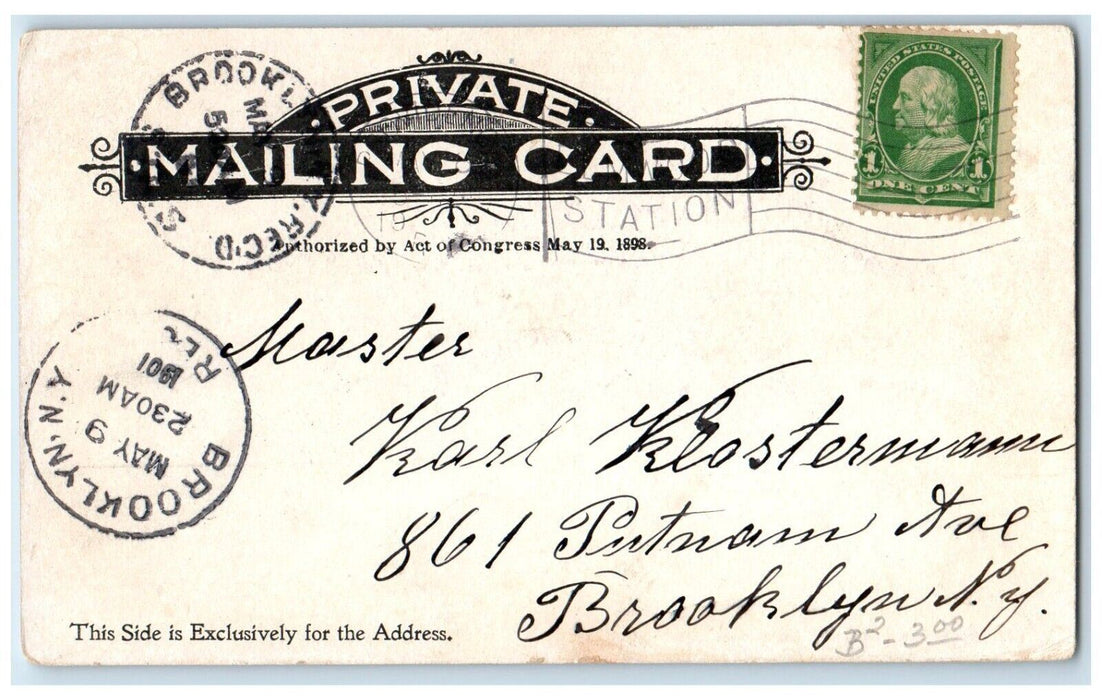 PRIVATE
MAILING CARD
Authorized by Act of Congress May 19, 1898.
UNITED STATES POSTAGE
1 1
ONE CENT
STATION
BROOKLYN, N.Y. REC'D
BROOKLYN, N.Y.
MAY 9
230AM
1901
REC
Master
Karl Klostermann
861 Putnam Ave
Brooklyn N.Y.
This Side is Exclusively for the Address.
B2 - 3.00